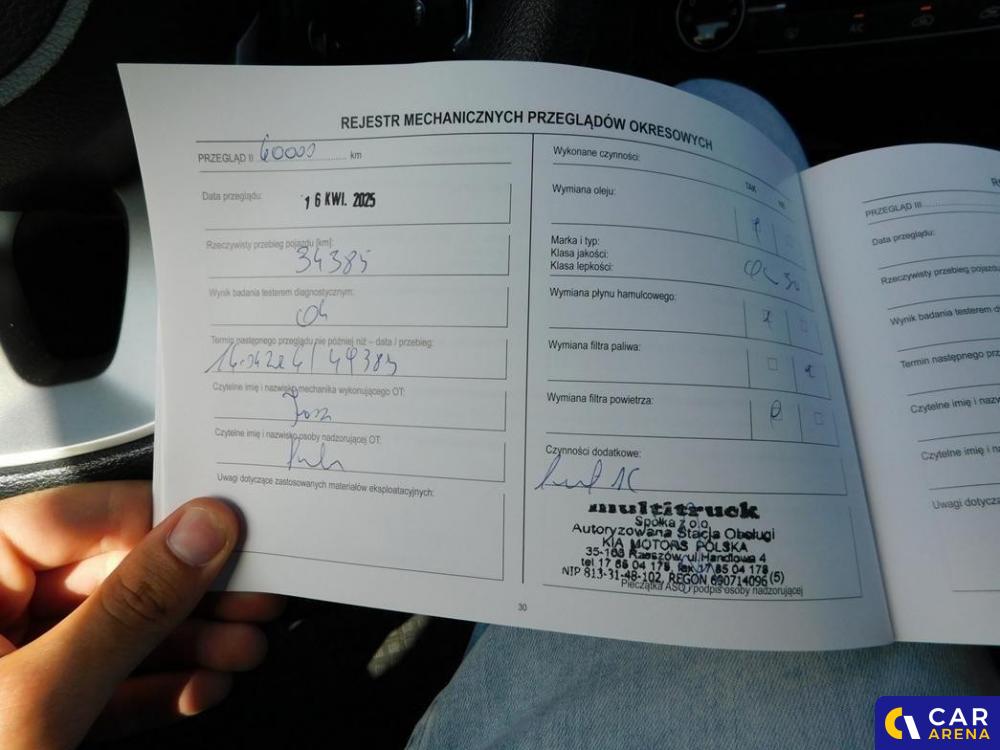 REJESTR MECHANICZNYCH PRZEGLĄDÓW OKRESOWYCH
PRZEGLĄD II 60000 km
Data przeglądu: 16 KWI. 2025
Rzeczywisty przebieg pojazdu [km]:
34385
Wynik badania testerem diagnostycznym:
Ok
Termin następnego przeglądu nie później niż – data / przebieg:
/ 49385
Czytelne imię i nazwisko mechanika wykonującego OT:
Czytelne imię i nazwisko osoby nadzorującej OT:
Uwagi dotyczące zastosowanych materiałów eksploatacyjnych:
Wykonane czynności:
TAK
Wymiana oleju:
Marka i typ:
Klasa jakości:
Klasa lepkości:
Wymiana płynu hamulcowego:
Wymiana filtra paliwa:
Wymiana filtra powietrza:
Czynności dodatkowe:
multitruck
Spółka z o.o.
Autoryzowana Stacja Obsługi
KIA MOTORS POLSKA
35-103 Rzeszów, ul. Handlowa 4
tel 17 85 04 178, fax 17 85 04 178
NIP 813-31-48-102, REGON 690714096 (5)
Pieczątka ASO i podpis osoby nadzorującej
30
PRZEGLĄD III
Data przeglądu:
Rzeczywisty przebieg pojazdu
Wynik badania testerem
Termin następnego
Czytelne imię i
Czytelne imię i
Uwagi dotyczące
CAR
ARENA